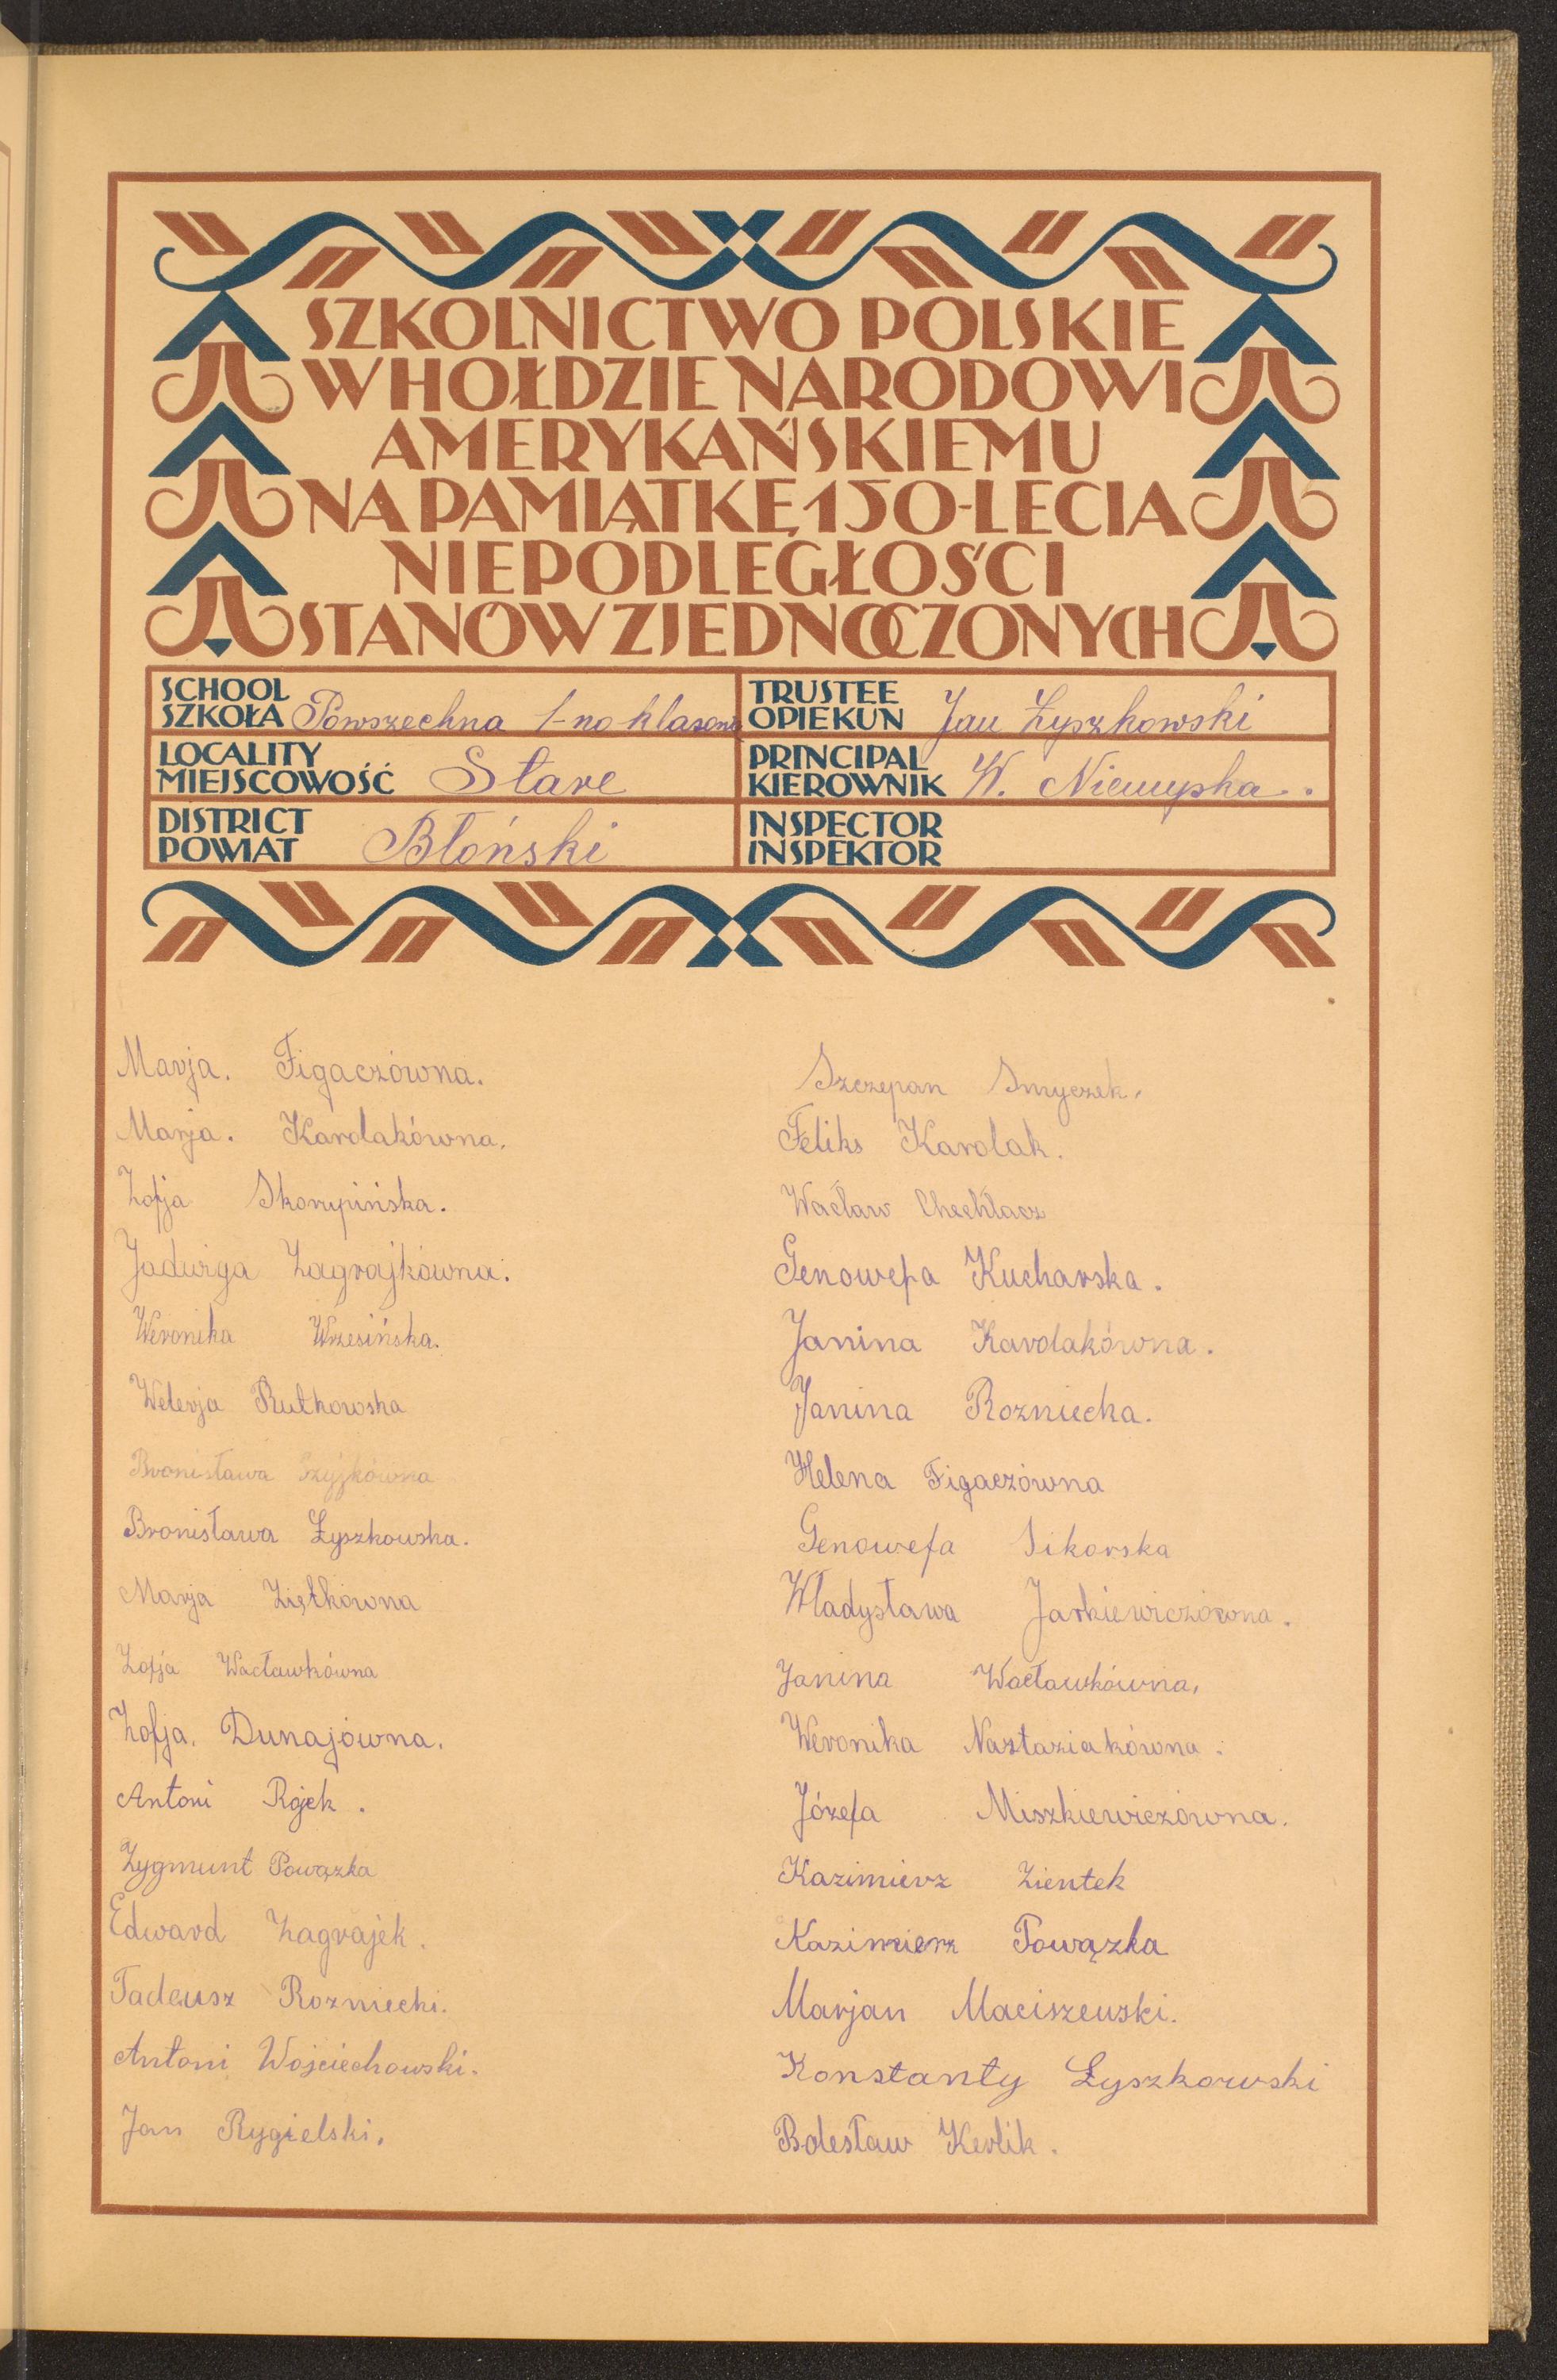 SZKOLNICTWO POLSKIE
W HOŁDZIE NARODOWI
AMERYKAŃSKIEMU
NA PAMIĄTKĘ 150-LECIA
NIEPODLEGŁOŚCI
STANÓW ZJEDNOCZONYCH
SCHOOL
SZKOŁA Powszechna 1-no klasowa
LOCALITY
MIEJSCOWOŚĆ Stare
DISTRICT
POWIAT Błoński
TRUSTEE
OPIEKUN Jan Łyszkowski
PRINCIPAL
KIEROWNIK W. Niemyska.
INSPECTOR
INSPEKTOR
Marja. Figaczówna.
Marja. Karolakówna.
Zofja Skorupińska.
Jadwiga Zagrajkówna.
Weronika Wrzesińska.
Welerja Rutkowska
Bronisława Szyjkówna
Bronisława Łyszkowska.
Marja Ziętkówna
Zofja Wacławkówna
Zofja. Dunajówna.
Antoni Rojek.
Zygmunt Powązka
Edward Zagrajek.
Tadeusz Rozniecki.
Antoni Wojciechowski.
Jan Rygielski.
Szczepan Smyczek.
Feliks Karolak.
Wacław Chechłacz
Genowefa Kucharska.
Janina Karolakówna.
Janina Rozniecka.
Helena Figaczówna
Genowefa Sikorska
Władysława Jarkiewiczówna.
Janina Wacławkówna.
Weronika Nastaziakówna.
Józefa Miszkiewiczówna.
Kazimierz Zientek
Kazimierz Powązka
Marjan Maciszewski.
Konstanty Łyszkowski
Bolesław Kerlik.